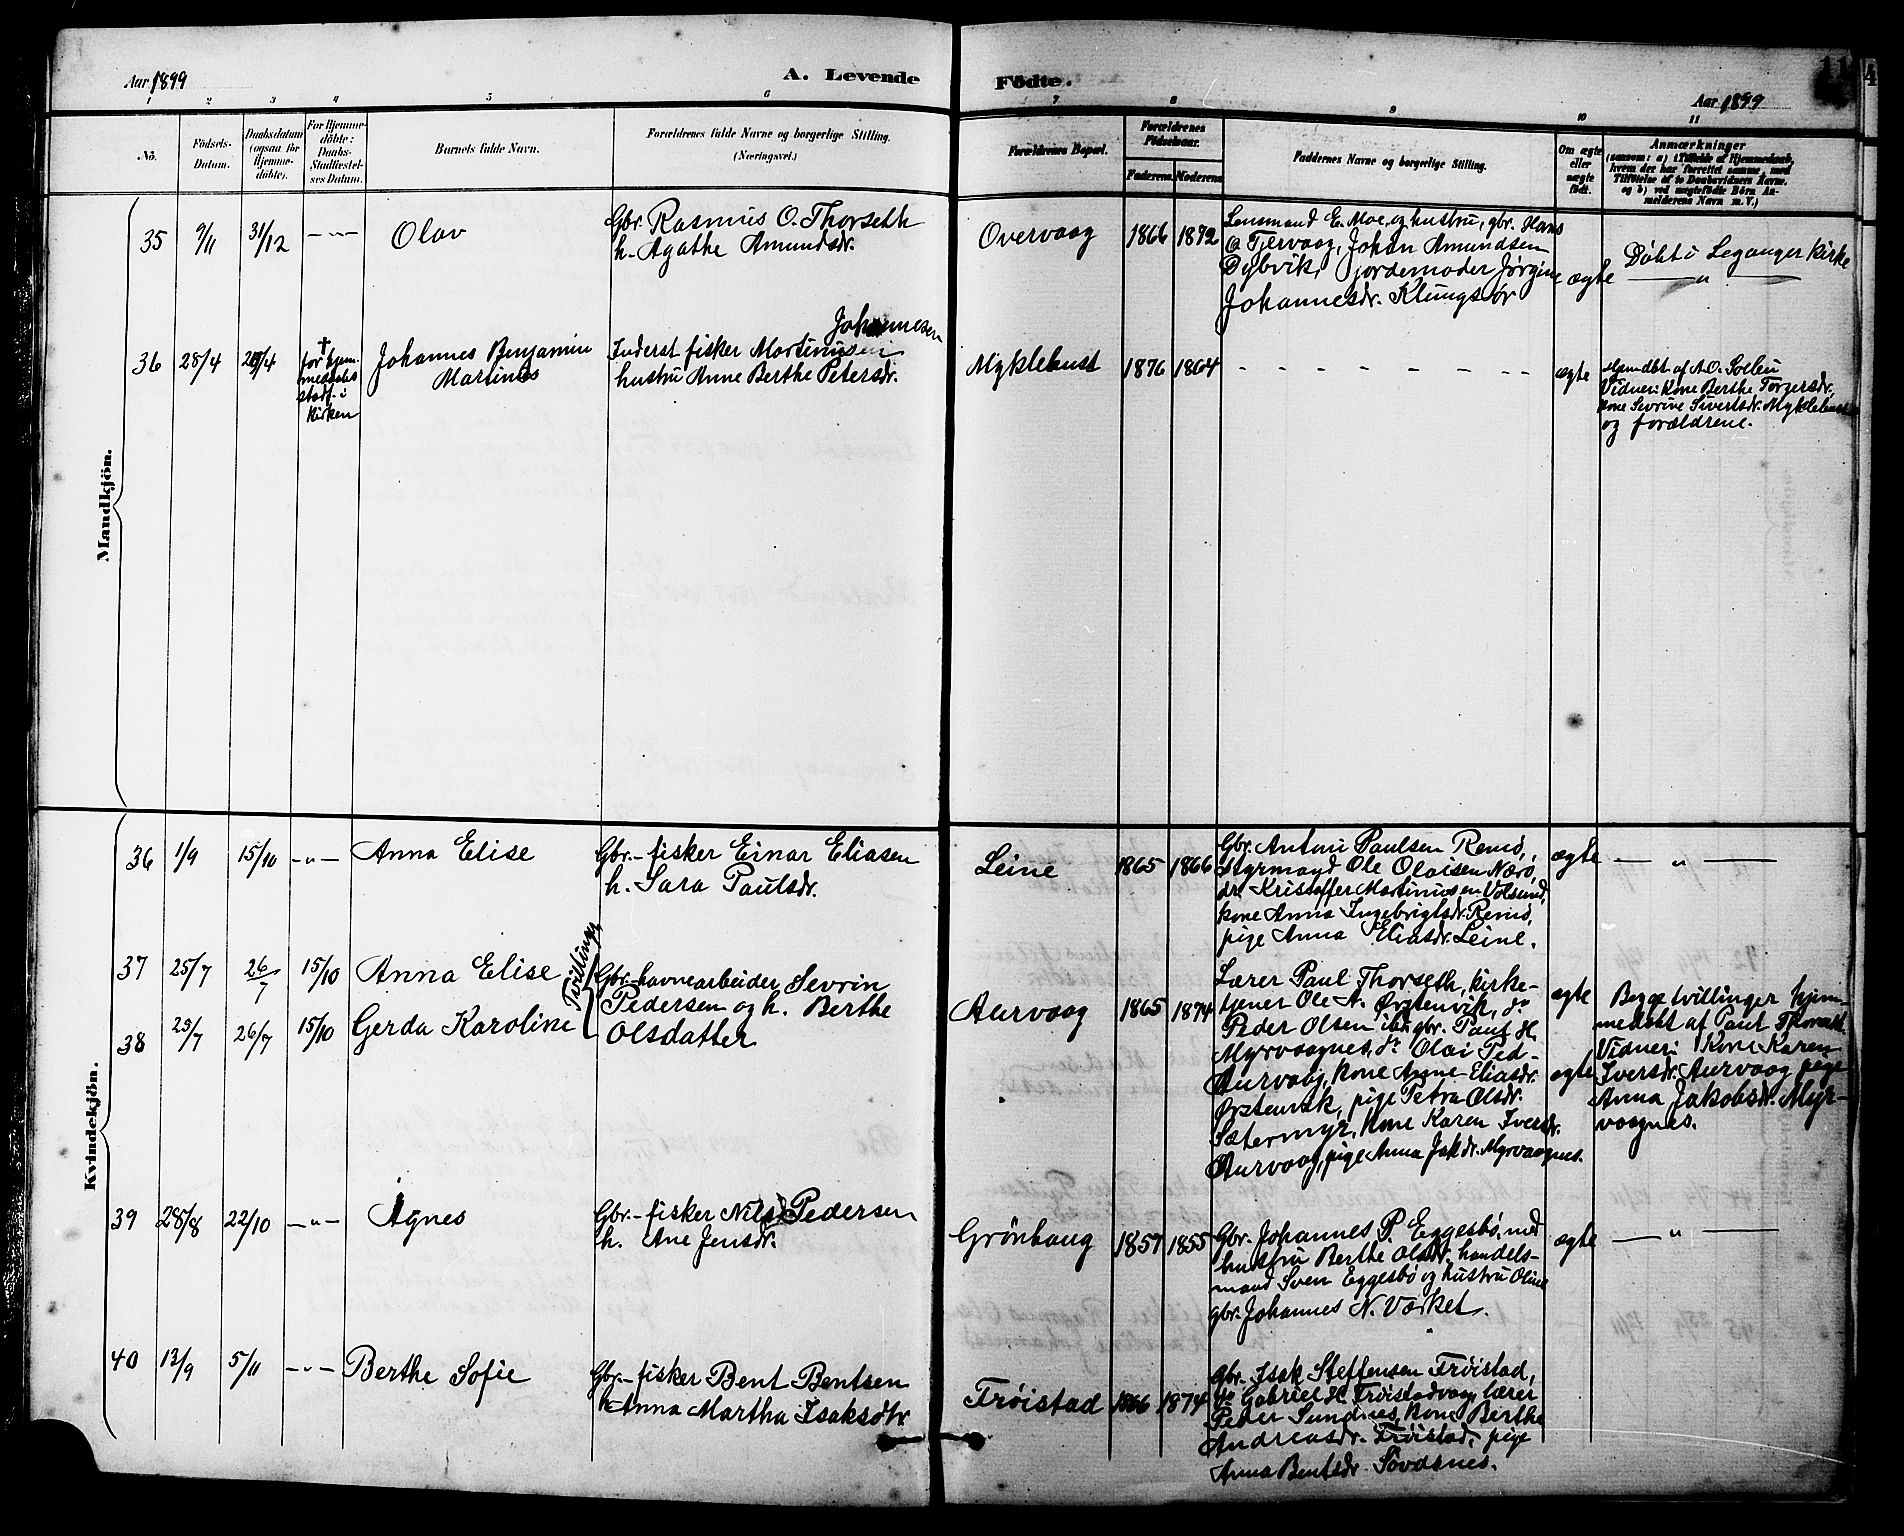 Aar 1899
A. Levende
Födte.
Aar 1899
11
1 2 3 4 5 6 7 8 9 10 11
No.
Födsels-
Datum.
Daabsdatum
(ogsaa for
Hjemme-
döbte).
For Hjemme-
döbte:
Daabs-
Stadfæstel-
ses Datum.
Barnets fulde Navn.
Forældrenes fulde Navne og borgerlige Stilling.
(Næringsvei.)
Forældrenes Bopæl.
Forældrenes
Födselsaar.
Faderens. Moderens.
Faddernes Navne og borgerlige Stilling.
Om ægte
eller
uægte
født.
Anmærkninger
(saasom: a) i Tilfælde af Hjemmedaab,
hvem der har forrettet samme, med
Tilföielse af to Daabsvidners Navne,
og b) ved uægtefödte Börn An-
melderens Navn m. V.)
Mandkjön.
35 9/11 31/12 – „ –
Olav
Gbr. Rasmus O. Thorseth
h. Agathe Amundsdr.
Overvaag 1866 1872
Lensmand E. Moe, og hustru, gbr. Hans
O. Tjervaag, Johan Amundsen
Dybvik, jordemoder Jørgine
Johannesdr. Klungsør
ægte
Døbt i Leganger kirke
— „ —
36 28/4 29/4
†
for hjem-
medaabs
stadf. i
Kirken
Johannes Benjamin
Martines
Johannesen
Inderst fisker Martinusen
hustru Anne Berthe Petersdr.
Myklebust 1876 1864
- - - - - - - -
ægte
Hjemdbt af A. O. Solli
Vidner: Kone Berthe Torgersdr,
kone Sevrine Sivertsdr. Myklebust
og forældrene.
Kvindekjön.
36 1/9 15/10 – „ –
Anna Elise
Gbr.- fisker Einar Eliasen
h. Sara Paulsdr.
Leine 1865 1866
Gbr. Antoni Paulsen Remø,
Styrmand Ole Olaisen Nærø,
do Kristoffer Martinusen Volsund,
kone Anna Ingebrigtsdr. Remø,
pige Anna Eliasdr. Leine.
ægte
— „ —
37 25/7 26/7 15/10
Anna Elise
38 25/7 26/7 15/10
Gerda Karoline
Tvillinger
Gbr.-havnearbeider Sevrin
Pedersen og h. Berthe
Olsdatter
Aurvaag 1865 1874
Lærer Paul Thorseth, kirke-
tjener Ole N. Ørstenvik, do
Peder Olsen ibd, gbr. Paul H.
Myrvaagnes, do Olai Ped-
Aurvaag, kone Anne Eliasdr.
Ørstenvik, pige Petra Olsdr.
Sætermyr, kone Karen Iversdr.
Aurvaag, pige Anna Jakdr. Myrvaagnes.
ægte
ægte
Begge tvillinger hjem-
medøbt af Paul Thorseth
Vidner: Kone Karen
Iversdr. Aurvaag pige
Anna Jakobsdr. Myr-
vaagnes.
39 28/8 22/10 – „ –
Agnes
Gbr.- fisker Nils Pedersen
h. Ane Jensdr.
Grönhaug 1857 1855
Gbr. Johannes P. Eggesbö, med
hustru Berthe Olsdr. handels-
mand Sven Eggesbø og hustru Oline
gbr. Johannes N. Værket.
ægte
— „ —
40 13/9 5/11 – „ –
Berthe Sofie
Gbr.- fisker Bent Bentsen
h. Anna Martha Isaksdtr
Frøistad 1866 1874
Gbr. Isak Steffensen Frøistad,
do Gabriel H. Frøistadvaag, lærer
Peder Sundnes, kone Berthe
Andreasdr. Frøistad, pige
Anna Bentsdr. Søvdsnes.